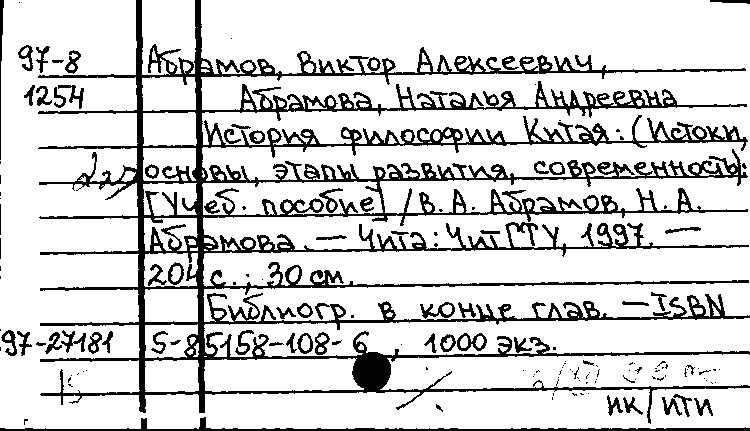 97-8 Абрамов, Виктор Алексеевич,
1254 Абрамова, Наталья Андреевна
История философии Китая: (Истоки,
основы, этапы развития, современность):
[Учеб. пособие] / В. А. Абрамов, Н. А.
Абрамова. — Чита: ЧитГТУ, 1997. —
204 с.; 30 см.
Библиогр. в конце глав. — ISBN
97-27181 5-85158-108-6, 1000 экз.
15
ИК/ИТИ